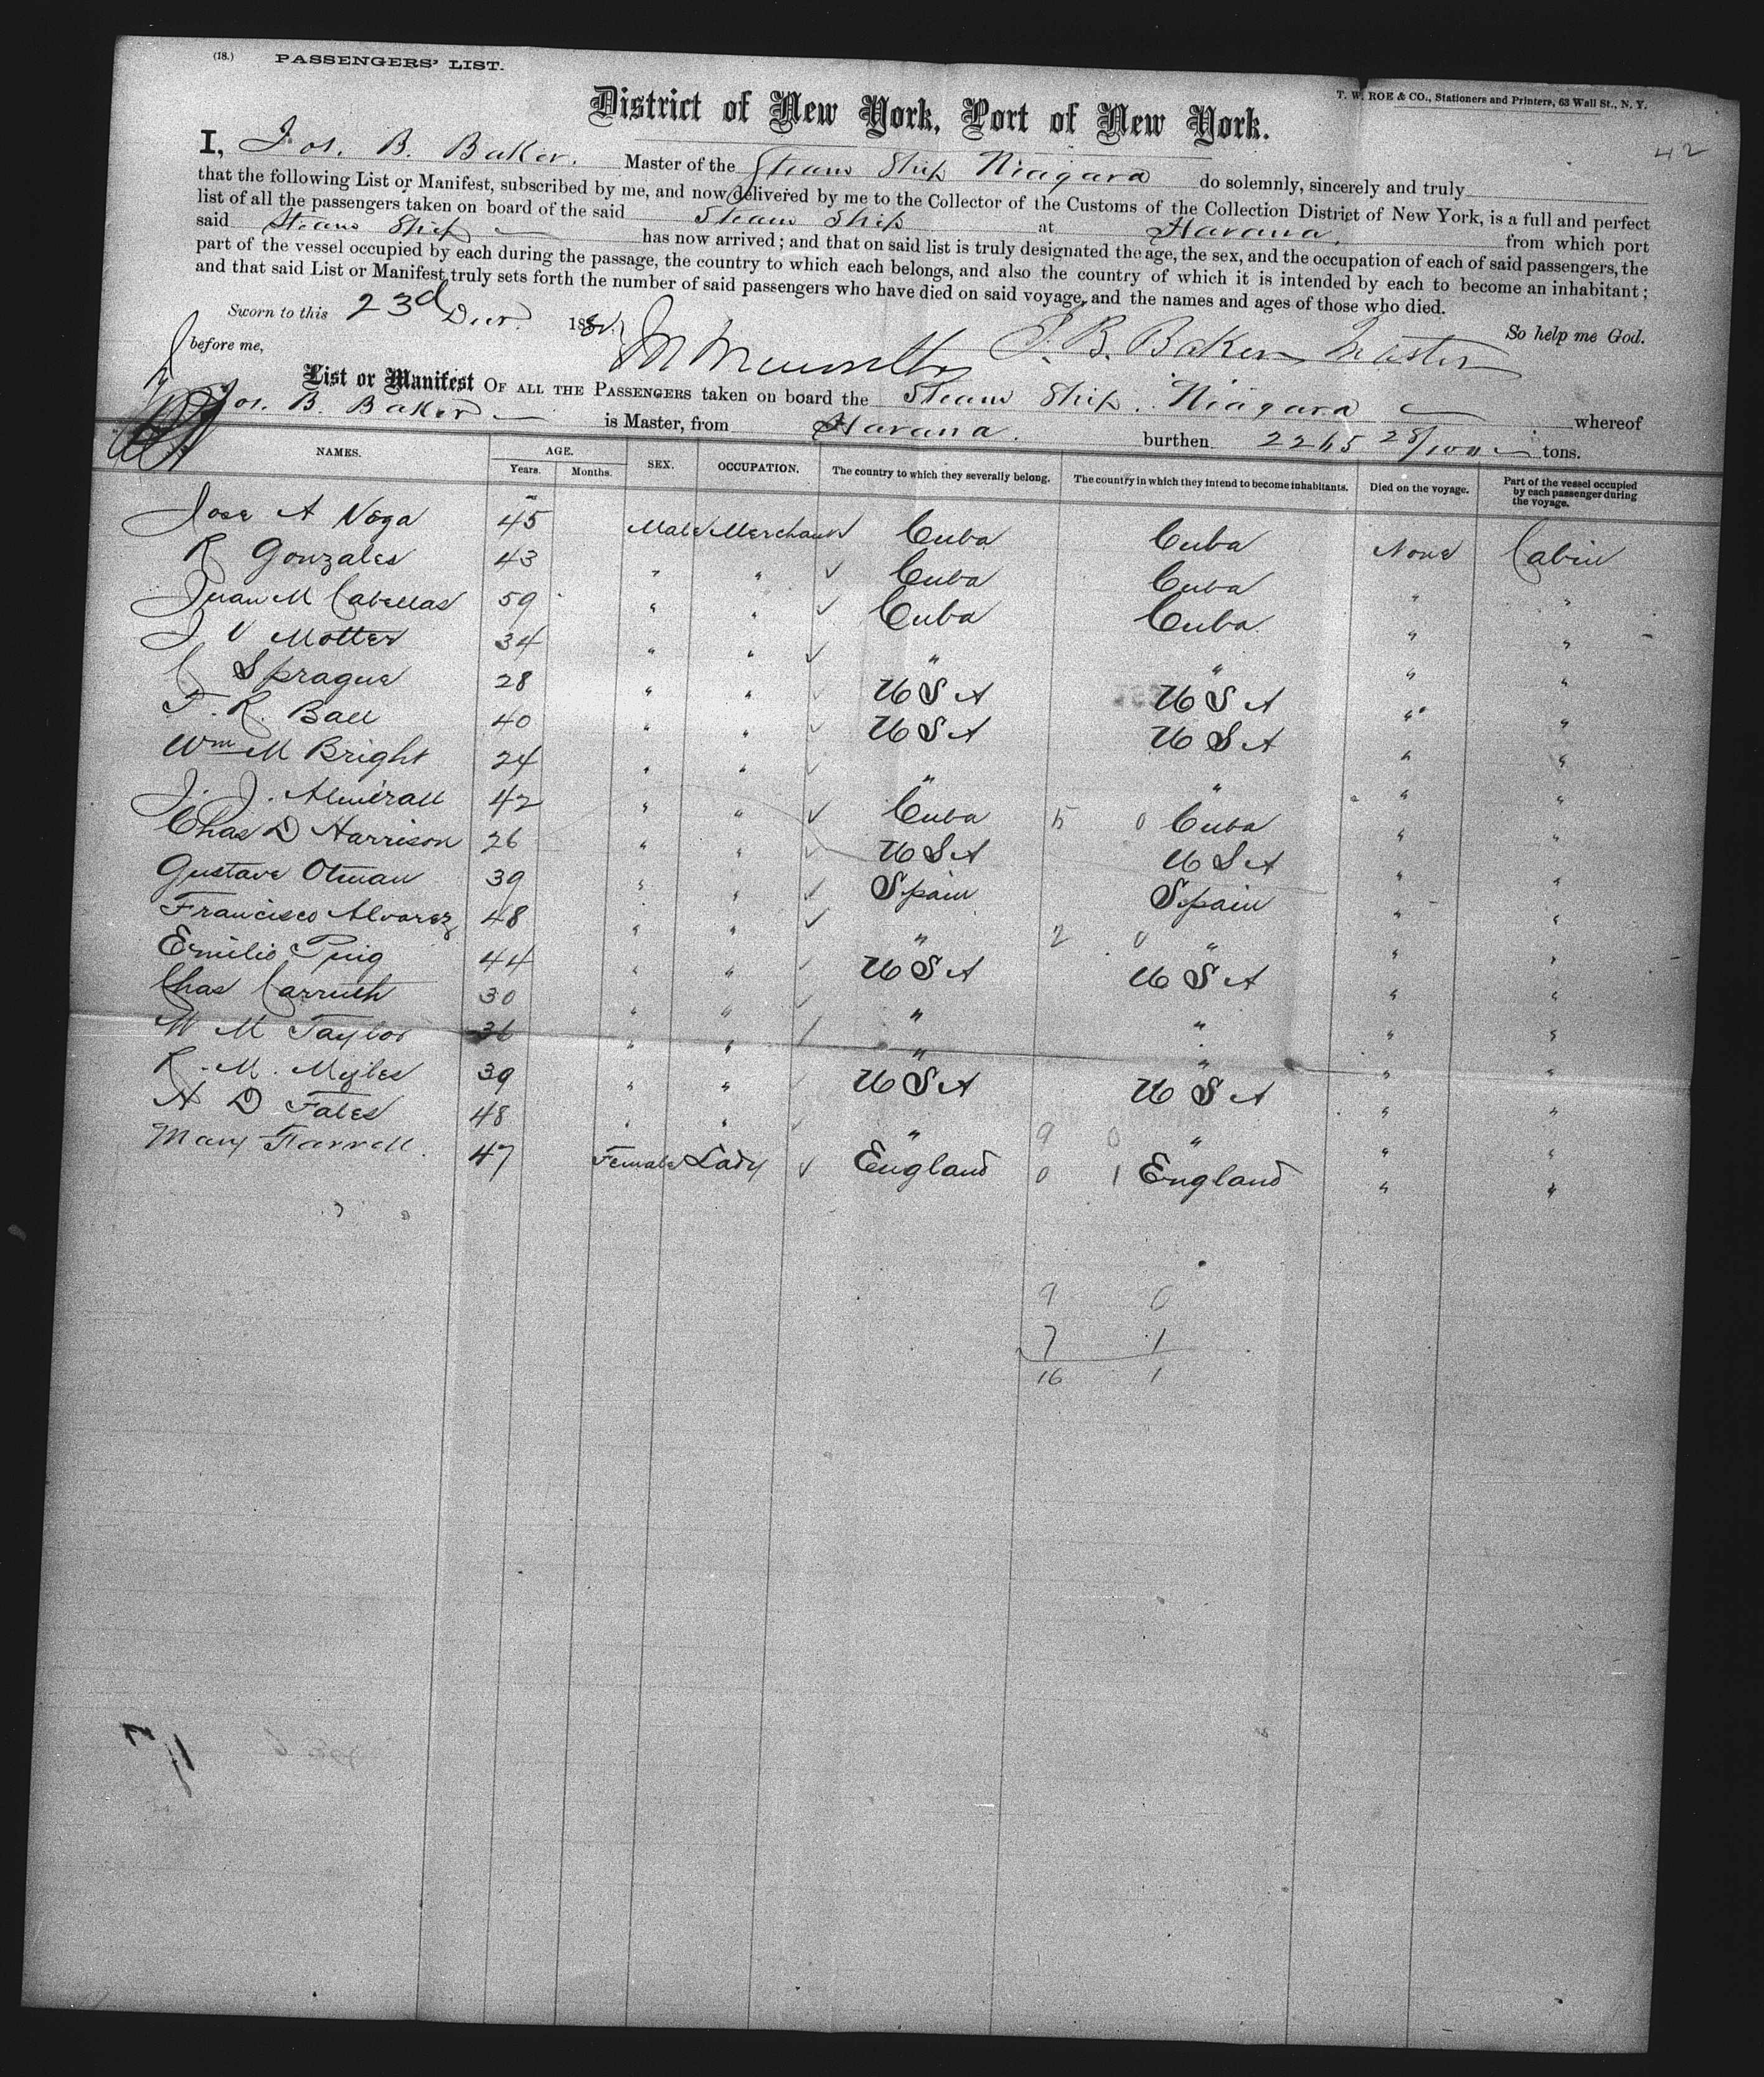 (18.) PASSENGERS' LIST.
T. W. ROE & CO., Stationers and Printers, 63 Wall St., N. Y.
42
District of New York, Port of New York.
I, Jos. B. Baker. Master of the Steam Ship Niagara do solemnly, sincerely and truly
that the following List or Manifest, subscribed by me, and now delivered by me to the Collector of the Customs of the Collection District of New York, is a full and perfect
list of all the passengers taken on board of the said Steam Ship at Havana, from which port
said Steam Ship has now arrived; and that on said list is truly designated the age, the sex, and the occupation of each of said passengers, the
part of the vessel occupied by each during the passage, the country to which each belongs, and also the country of which it is intended by each to become an inhabitant;
and that said List or Manifest truly sets forth the number of said passengers who have died on said voyage, and the names and ages of those who died.
Sworn to this 23d 188 So help me God.
before me, J. B. Baker Master
List or Manifest OF ALL THE PASSENGERS taken on board the Steam Ship. Niagara whereof
Jos. B. Baker is Master, from Havana. burthen 2265 28/100 tons.
NAMES. AGE. Years. Months. SEX. OCCUPATION. The country to which they severally belong. The country in which they intend to become inhabitants. Died on the voyage. Part of the vessel occupied by each passenger during the voyage.
Jose A Vega 45 Male Merchant Cuba Cuba None Cabin
R Gonzales 43 " " Cuba Cuba " "
Juan M Cabellas 59 " " Cuba Cuba " "
J V Motter 34 " " " " " "
C Sprague 28 " " U S A U S A " "
F. R. Ball 40 " " U S A U S A " "
Wm M Bright 24 " " " " " "
J. J. Almirall 42 " " Cuba 5 0 Cuba " "
Chas D Harrison 26 " " U S A U S A " "
Gustave Otman 39 " " Spain Spain " "
Francisco Alvarez 48 " " " 2 0 " " "
Emilio Puig 44 " " U S A U S A " "
Chas Carruth 30 " " " " " "
W M Taylor 36 " " " " " "
R. M. Myles 39 " " U S A U S A " "
A D Fales 48 " " " 9 0 " " "
Mary Farrell. 47 Female Lady England 0 1 England " "
9 0
7 1
16 1